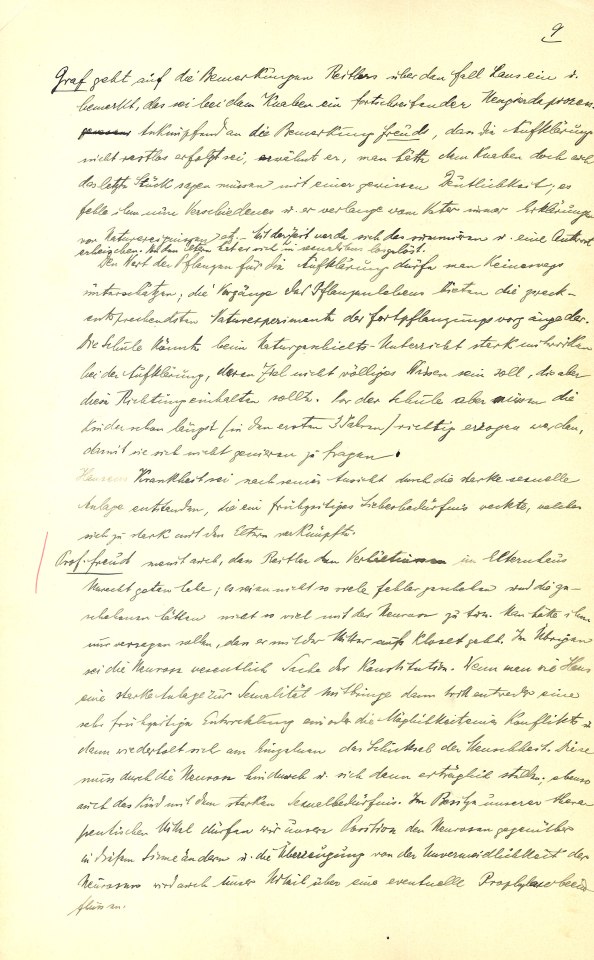 9
Graf geht auf die Bemerkungen Reitlers über den Fall Hans ein u.
bemerkt, das sei bei dem Knaben ein fortschreitender
Anknüpfend an die Bemerkung Freuds, dass die Aufklärung
nicht restlos erfolgt sei, erwähnt er, man hätte dem Knaben doch auch
das letzte Stück sagen müssen mit einer gewissen Deutlichkeit; es
fehle ihm nun Verschiedenes u. er verlange vom Vater immer Erklärungen
von Naturereignissen etc. Mit der Zeit werde sich das summieren u. eine Antwort
erheischen. Von den Eltern hat er sich in sexualibus losgelöst.
Den Wert der Pflanzen für die Aufklärung dürfe man keineswegs
unterschätzen; die Vorgänge des Pflanzenlebens bieten die zweck-
entsprechendsten Naturexperimente der Fortpflanzungsvorgänge dar.
Die Schule könnte beim Naturgeschichts-Unterricht stark mitwirken
bei der Aufklärung, deren Ziel nicht völliges Wissen sein soll, die aber
diese Richtung einhalten sollte. Vor der Schule aber müssen die
Kinder schon längst (in den ersten 3 Jahren) richtig erzogen werden,
damit sie sich nicht genieren zu fragen.
Hansens Krankheit sei nach seiner Ansicht durch die starke sexuelle
Anlage entstanden, die ein frühzeitiges Liebesbedürfnis weckte, welches
sich zu stark mit den Eltern verknüpfte.
Prof. Freud meint auch, dass Reitler den Verhältnissen im Elternhaus
Unrecht getan habe; es seien nicht so viele Fehler geschehen und die ge-
schehenen hätten nicht so viel mit der Neurose zu tun. Man hätte ihm
nur versagen sollen, dass er mit der Mutter aufs Kloset geht. Im Übrigen
sei die Neurose wesentlich Sache der Konstitution. Wenn man wie Hans
eine starke Anlage zur Sexualität mitbringe dann tritt entweder eine
sehr frühzeitige Entwicklung ein oder die Möglichkeit eines Konflikts u.
dann wiederholt sich am Einzelnen das Schicksal der Menschheit. Diese
muss durch die Neurose hindurch u. sich dann erträglich stellen; ebenso
auch das Kind mit dem starken Sexualbedürfnis. Im Besitze unserer thera-
peutischen Mittel dürfen wir unsere Position den Neurosen gegenüber
in diesem Sinne ändern u. die Überzeugung von der Unvermeidlichkeit der
Neurosen wird auch unser Urteil über eine eventuelle Prophylaxe beein-
flussen.